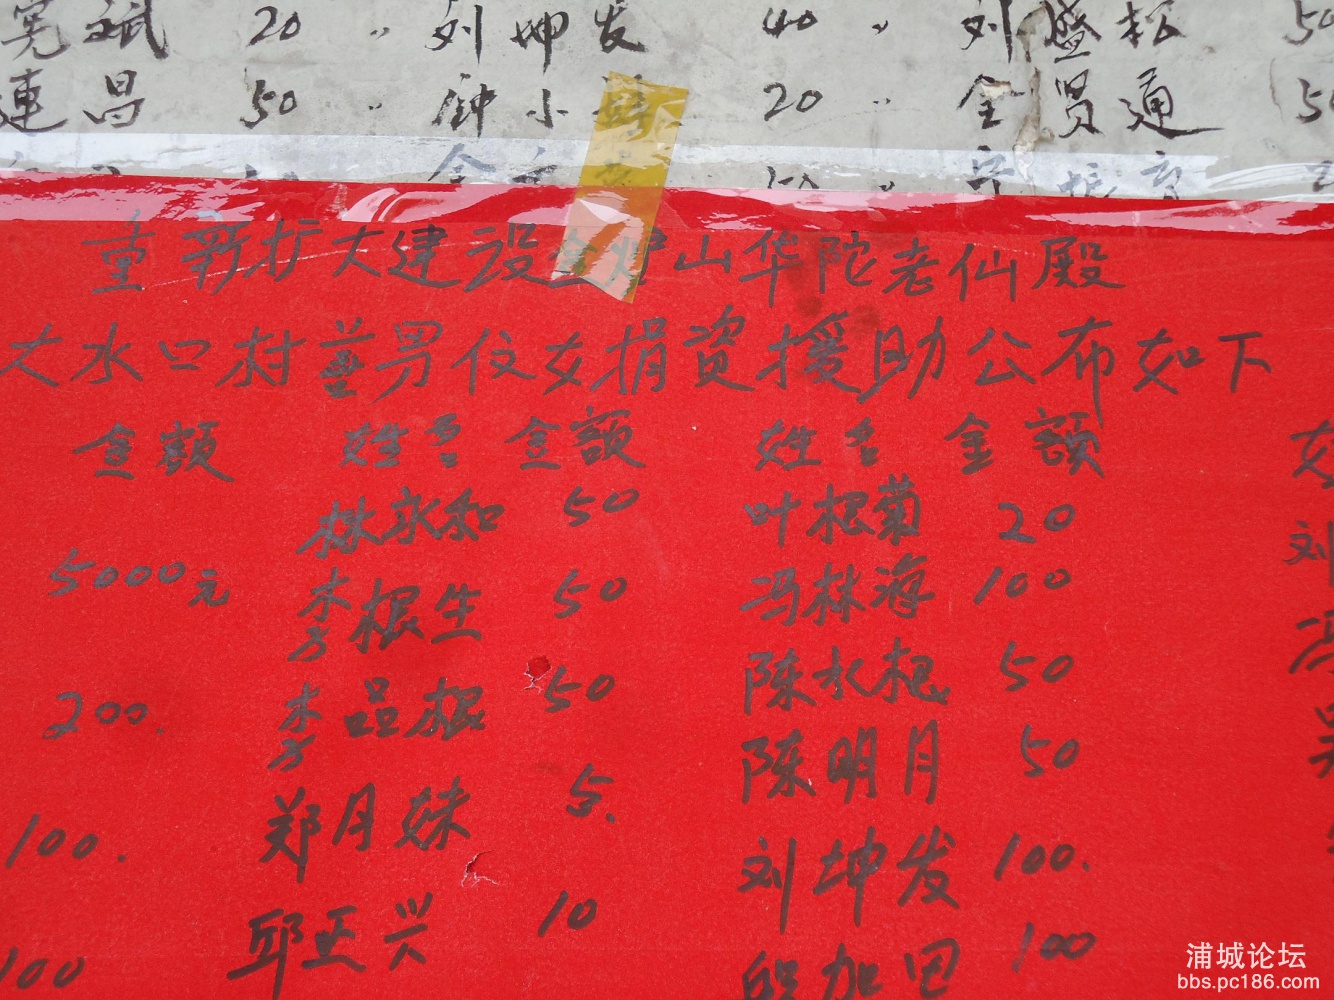 斌 20 〃 刘坤发 40 〃 刘盛松 50
連昌 50 〃 钟小 20 〃 全贤通 50
重新扩大建设金炉山华陀老仙殿
大水口村善男信女捐资援助公布如下
金额 姓名 金额 姓名 金额
林永和 50 叶根菊 20
5000元 李根生 50 冯林海 100 刘
200. 李品根 50 陈水杞 50 冯
100. 郑月妹 5. 陈明月 50
100 邱正兴 10 刘坤发 100.
加 100
浦城论坛
bbs.pc186.com